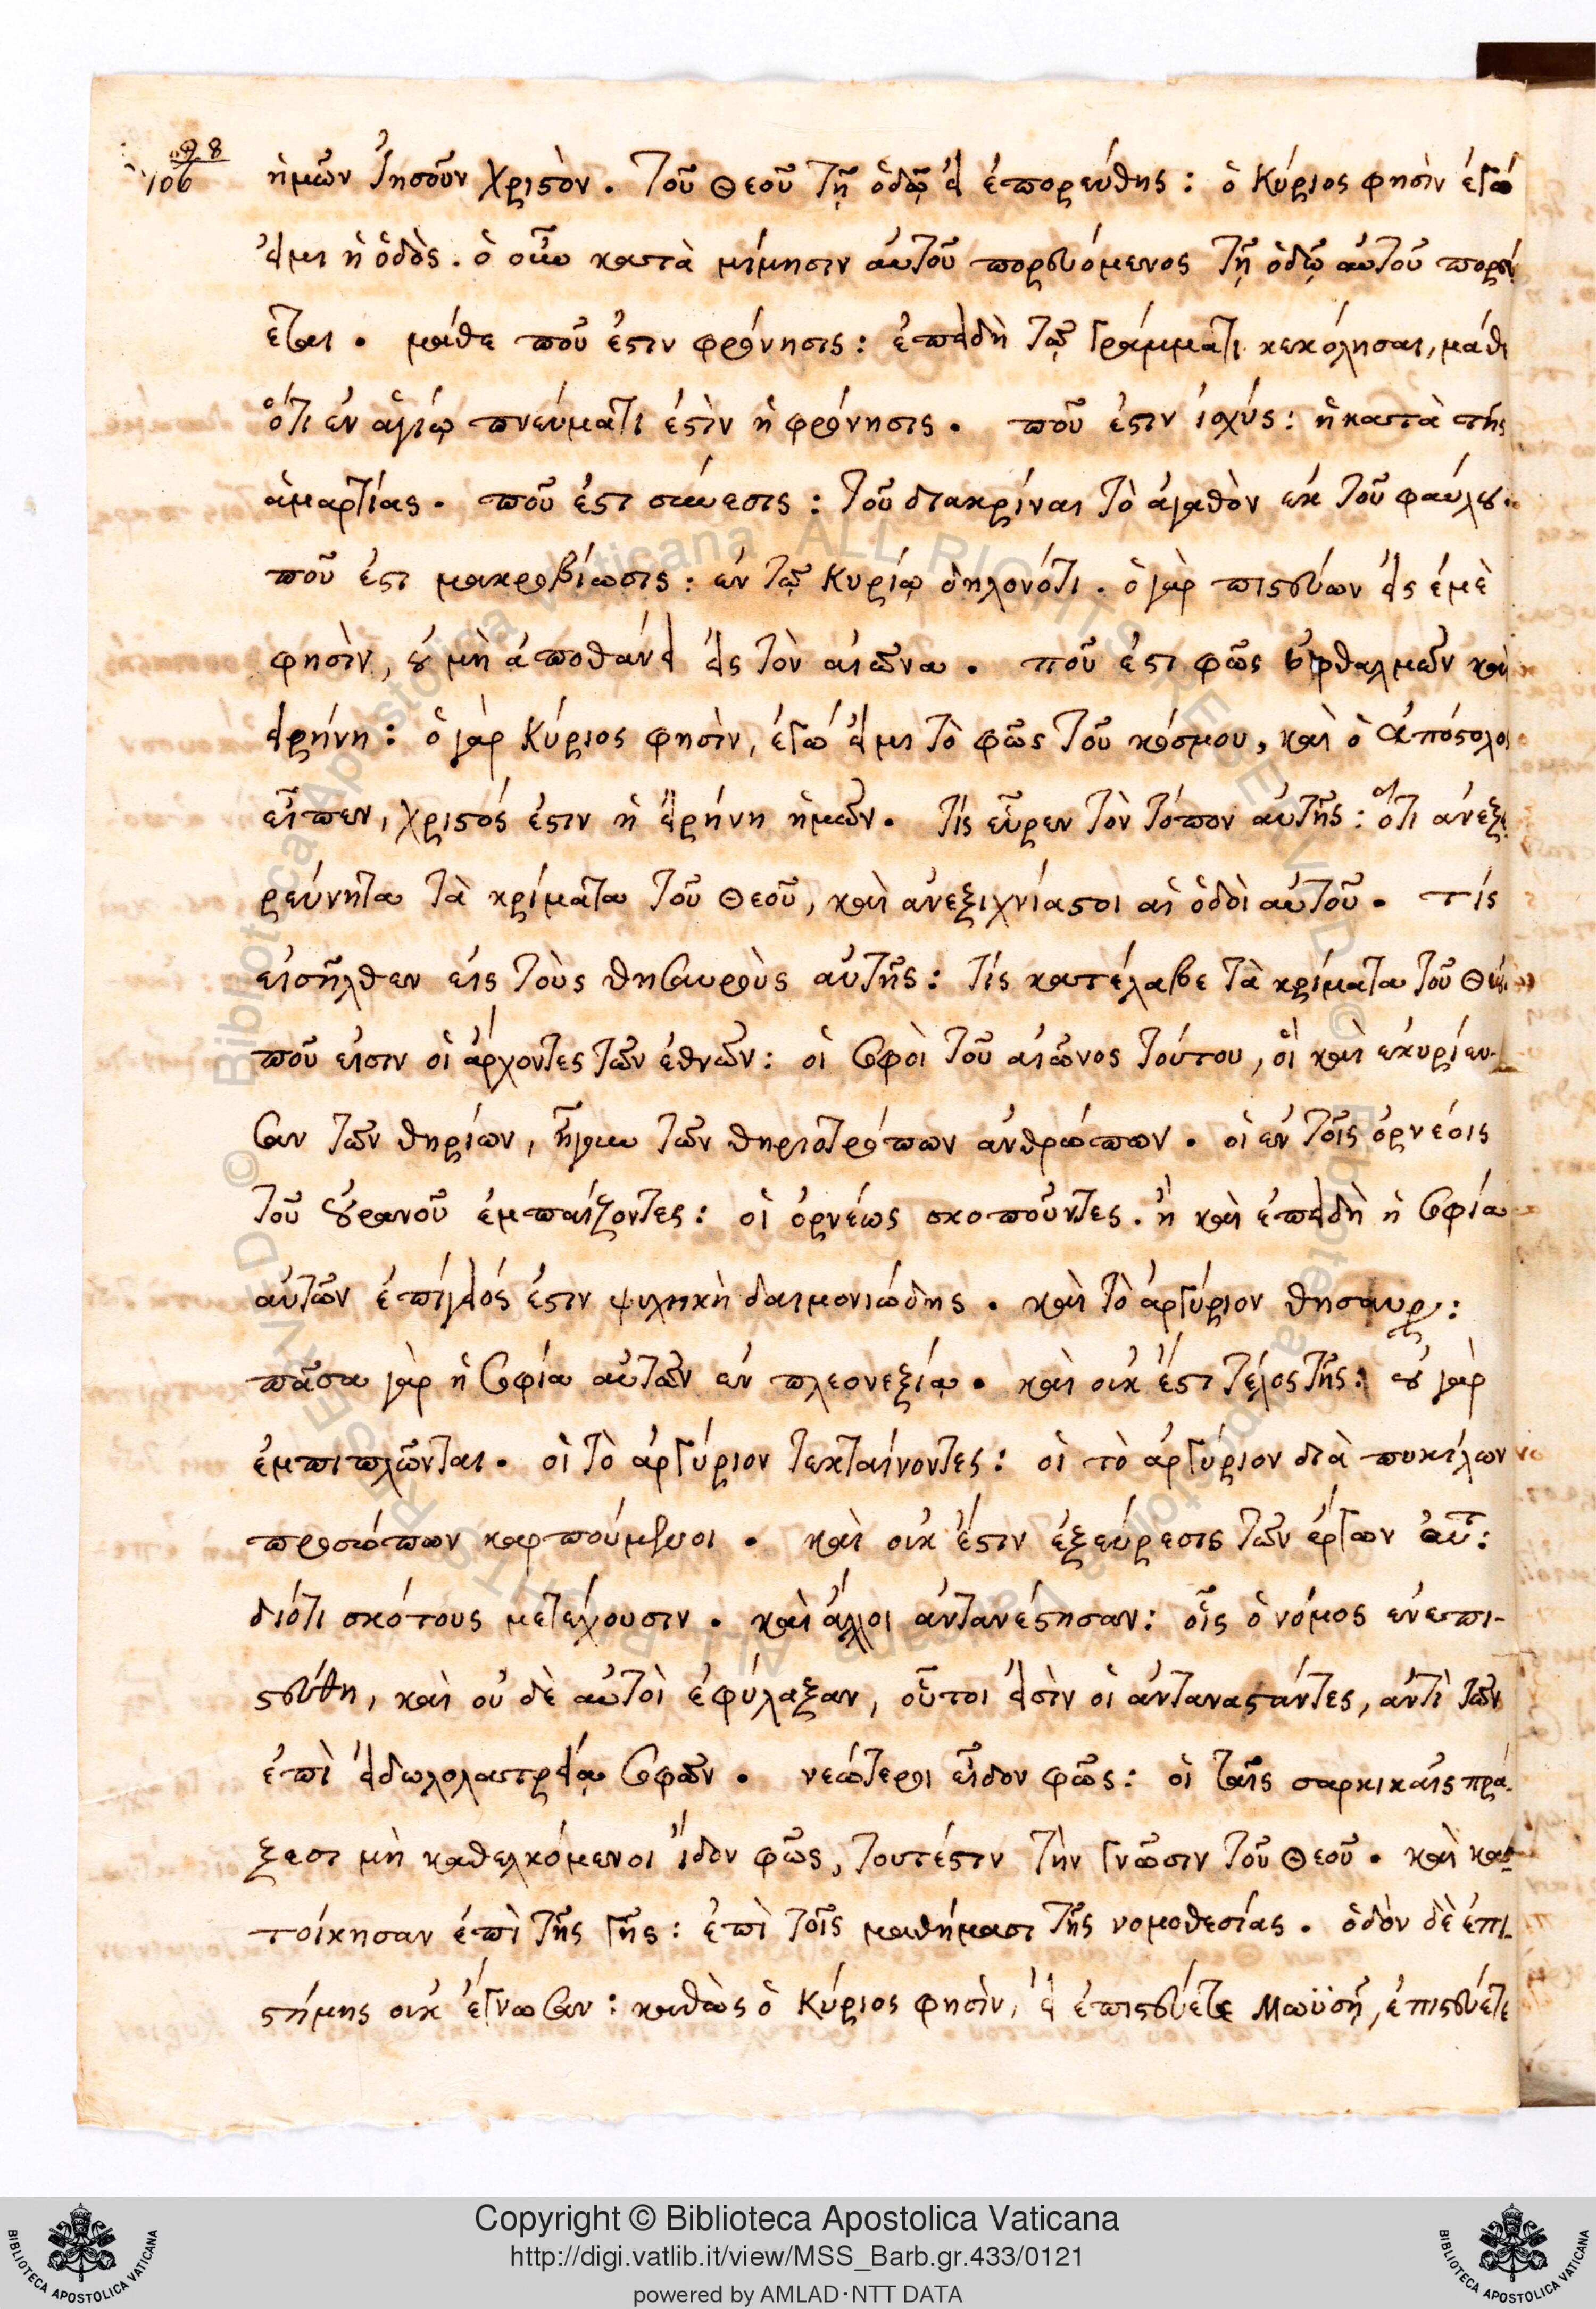 98
106
ἡμῶν Ἰησοῦν Χριστὸν. Τοῦ Θεοῦ τῇ ὁδῷ εἰ ἐπορεύθης: ὁ Κύριος φησὶν ἐγώ
εἰμι ἡ ὁδὸς. ὁ οὖν κατὰ μίμησιν αὐτοῦ πορευόμενος τῇ ὁδῷ αὐτοῦ πορεύ
εται. μάθε ποῦ ἐστιν φρόνησις: ἐπειδὴ τῷ γράμματι κεκόλησαι, μάθε
ὅτι ἐν ἁγίῳ πνεύματι ἐστὶν ἡ φρόνησις. ποῦ ἐστιν ἰσχύς: ἡ κατὰ τῆς
ἁμαρτίας. ποῦ ἐστι σύνεσις: τοῦ διακρίναι τὸ ἀγαθὸν ἐκ τοῦ φαύλου.
ποῦ ἐστι μακροβίωσις: ἐν τῷ Κυρίῳ δηλονότι. ὁ γὰρ πιστεύων εἰς ἐμὲ
φησὶν, οὐ μὴ ἀποθάνει εἰς τὸν αἰῶνα. ποῦ ἐστι φῶς ὀφθαλμῶν καὶ
εἰρήνη: ὁ γὰρ Κύριος φησὶν, ἐγώ εἰμι τὸ φῶς τοῦ κόσμου, καὶ ὁ Ἀπόστολος
εἶπεν, χριστός ἐστιν ἡ εἰρήνη ἡμῶν. Τίς εὗρεν τὸν τόπον αὐτῆς: ὅτι ἀνεξε
ρεύνητα τὰ κρίματα τοῦ Θεοῦ, καὶ ἀνεξιχνίαστοι αἱ ὁδοὶ αὐτοῦ. τίς
εἰσῆλθεν εἰς τοὺς θησαυροὺς αὐτῆς: τίς κατέλαβε τὰ κρίματα τοῦ Θεοῦ
ποῦ εἰσιν οἱ ἄρχοντες τῶν ἐθνῶν: οἱ σοφοὶ τοῦ αἰῶνος τούτου, οἳ καὶ ἐκυρίευ-
σαν τῶν θηρίων, ἤγουν τῶν θηριοτρόπων ἀνθρώπων. οἱ ἐν τοῖς ὀρνέοις
τοῦ οὐρανοῦ ἐμπαίζοντες: οἱ ὀρνέως σκοποῦντες. ἢ καὶ ἐπειδὴ ἡ σοφία
αὐτῶν ἐπίγειός ἐστιν ψυχικὴ δαιμονιώδης. καὶ τὸ ἀργύριον θησαυρ:
πᾶσα γὰρ ἡ σοφία αὐτῶν ἐν πλεονεξίᾳ. καὶ οὐκ ἔστι τέλος τῆς: οὐ γὰρ
ἐμπιπλῶνται. οἱ τὸ ἀργύριον τεκταίνοντες: οἱ τὸ ἀργύριον διὰ ποικίλων
προσώπων καρπούμενοι. καὶ οὐκ ἔστιν ἐξεύρεσις τῶν ἔργων αὐτ:
διότι σκότους μετέχουσιν. καὶ ἄλλοι ἀντανέστησαν: οἷς ὁ νόμος ἐνεπι-
στεύθη, καὶ οὐ δὲ αὐτοὶ ἐφύλαξαν, οὗτοι εἰσὶν οἱ ἀντανασtάντες, ἀντὶ τῶν
ἐπὶ εἰδωλολατρείᾳ σοφῶν. νεώτεροι εἶδον φῶς: οἱ ταῖς σαρκικαῖς πρά-
ξεσι μὴ καθελκόμενοι ἴδον φῶς, τουτέστιν τὴν γνῶσιν τοῦ Θεοῦ. καὶ κα-
τοίκησαν ἐπὶ τῆς γῆς: ἐπὶ τοῖς μαθήμασι τῆς νομοθεσίας. ὁδὸν δὲ ἐπι-
στήμης οὐκ ἔγνωσαν: καθὼς ὁ Κύριος φησὶν, εἰ ἐπιστεύετε Μωϋσῇ, ἐπιστεύετε
Copyright © Biblioteca Apostolica Vaticana
http://digi.vatlib.it/view/MSS_Barb.gr.433/0121
powered by AMLAD·NTT DATA